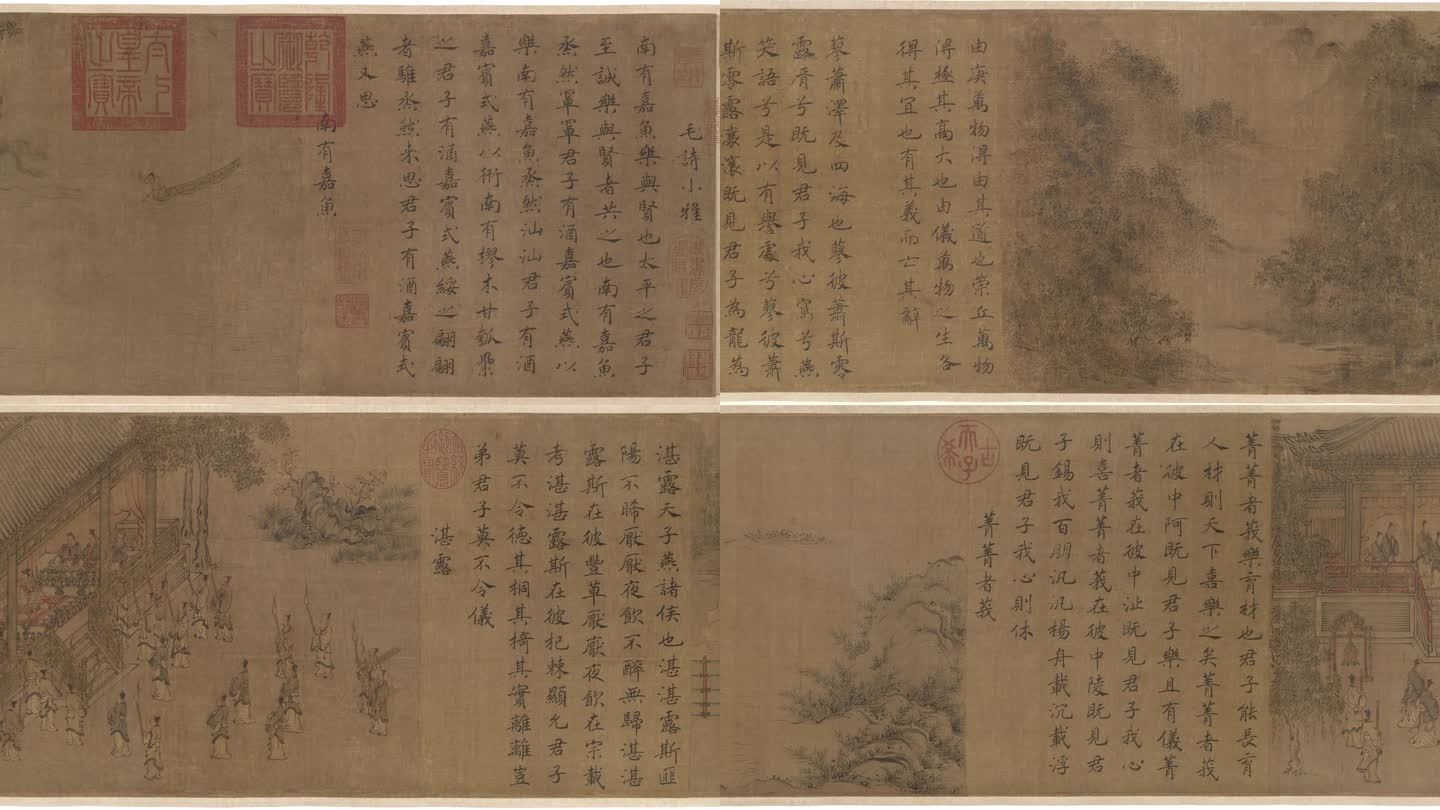 毛詩小雅
南有嘉魚樂與賢也太平之君子
至誠樂與賢者共之也南有嘉魚
烝然罩罩君子有酒嘉賓式燕以
樂南有嘉魚烝然汕汕君子有酒
嘉賓式燕以衎南有樛木甘瓠纍
之君子有酒嘉賓式燕綏之翩翩
者鵻烝然來思君子有酒嘉賓式
燕又思
南有嘉魚
乾隆御覽之寶
太上皇帝之寶
由庚萬物得由其道也崇丘萬物
得極其高大也由儀萬物之生各
得其宜也有其義而亡其辭
蓼蕭澤及四海也蓼彼蕭斯零
露湑兮既見君子我心寫兮燕
笑語兮是以有譽處兮蓼彼蕭
斯零露瀼瀼既見君子為龍為
湛露天子燕諸侯也湛湛露斯匪
陽不晞厭厭夜飲不醉無歸湛湛
露斯在彼豐草厭厭夜飲在宗載
考湛湛露斯在彼杞棘顯允君子
莫不令德其桐其椅其實離離豈
弟君子莫不令儀
湛露
菁菁者莪樂育材也君子能長育
人材則天下喜樂之矣菁菁者莪
在彼中阿既見君子樂且有儀菁
菁者莪在彼中沚既見君子我心
則喜菁菁者莪在彼中陵既見君
子錫我百朋汎汎揚舟載沉載浮
既見君子我心則休
菁菁者莪